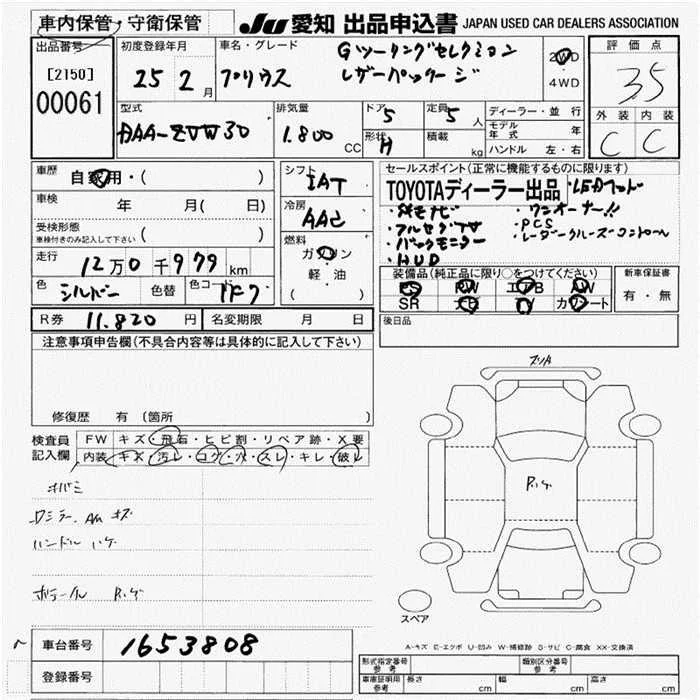 車内保管・守衛保管
JU 愛知 出品申込書 JAPAN USED CAR DEALERS ASSOCIATION
出品番号
[2150]
00061
初度登録年月
25 2月
車名・グレード
プリウス
Gツーリングセレクション
レザーパッケージ
2WD
・
4WD
評価点
3.5
外装 内装
C C
型式
DAA-ZVW30
排気量
1.800 CC
ドア 5
形状 H
定員 5人
積載 kg
ディーラー・並行
モデル年式 年
ハンドル 左・右
車歴
自家用・( )
車検
年 月( 日)
受検形態
車検付きのみ記入して下さい ( )
走行
12万0千979km
色 シルバー 色替 色コード 1F7
シフト IAT
冷房 AAC
燃料
ガソリン
軽・油
( )
セールスポイント(正常に機能するものに限ります)
TOYOTAディーラー出品 ・LEDヘッド
・純正ナビ ・ワンオーナー!!
・フルセグTV ・PCS
・バックモニター ・レーダークルーズコントロール
・HUD
装備品(純正品に限り○をつけてください)
PS PW エアB AW
SR ナビ TV カワシート
新車保証書
有・無
R券 11.820円 名変期限 月 日
後日品
注意事項申告欄(不具合内容等は具体的に記入して下さい)
修復歴 有(箇所 )
検査員
記入欄
FW キズ・飛石・ヒビ割・リペア跡・X要
内装 キズ・汚レ・コゲ・穴・スレ・キレ・破レ
ハンドル ハゲ
スペア
A-キズ E-エクボ U-凹み W-補修跡 S-サビ C-腐食 XX-交換済
車台番号 1653808
登録番号
形式指定番号
参考
類別区分番号
参考
車庫証明用
参考
長さ cm 幅 cm 高さ cm